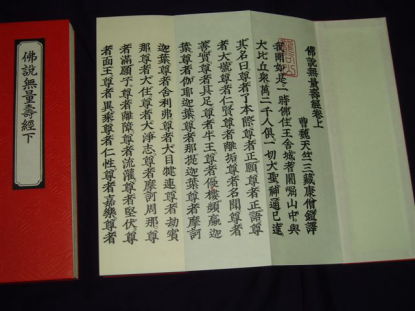 佛説無量壽經卷上
曹魏天竺三藏康僧鎧譯
我聞如是一時佛住王舍城耆闍崛山中與
大比丘衆萬二千人俱一切大聖神通已達
其名曰尊者了本際尊者正願尊者正語尊
者大號尊者仁賢尊者離垢尊者名聞尊者
善實尊者具足尊者牛王尊者優樓頻蠃迦
葉尊者伽耶迦葉尊者那提迦葉尊者摩訶
迦葉尊者舍利弗尊者大目犍連尊者劫賓
那尊者大住尊者大淨志尊者摩訶周那尊
者滿願子尊者離障尊者流灌尊者堅伏尊
者面王尊者異乘尊者仁性尊者嘉樂尊者
佛説無量壽經下